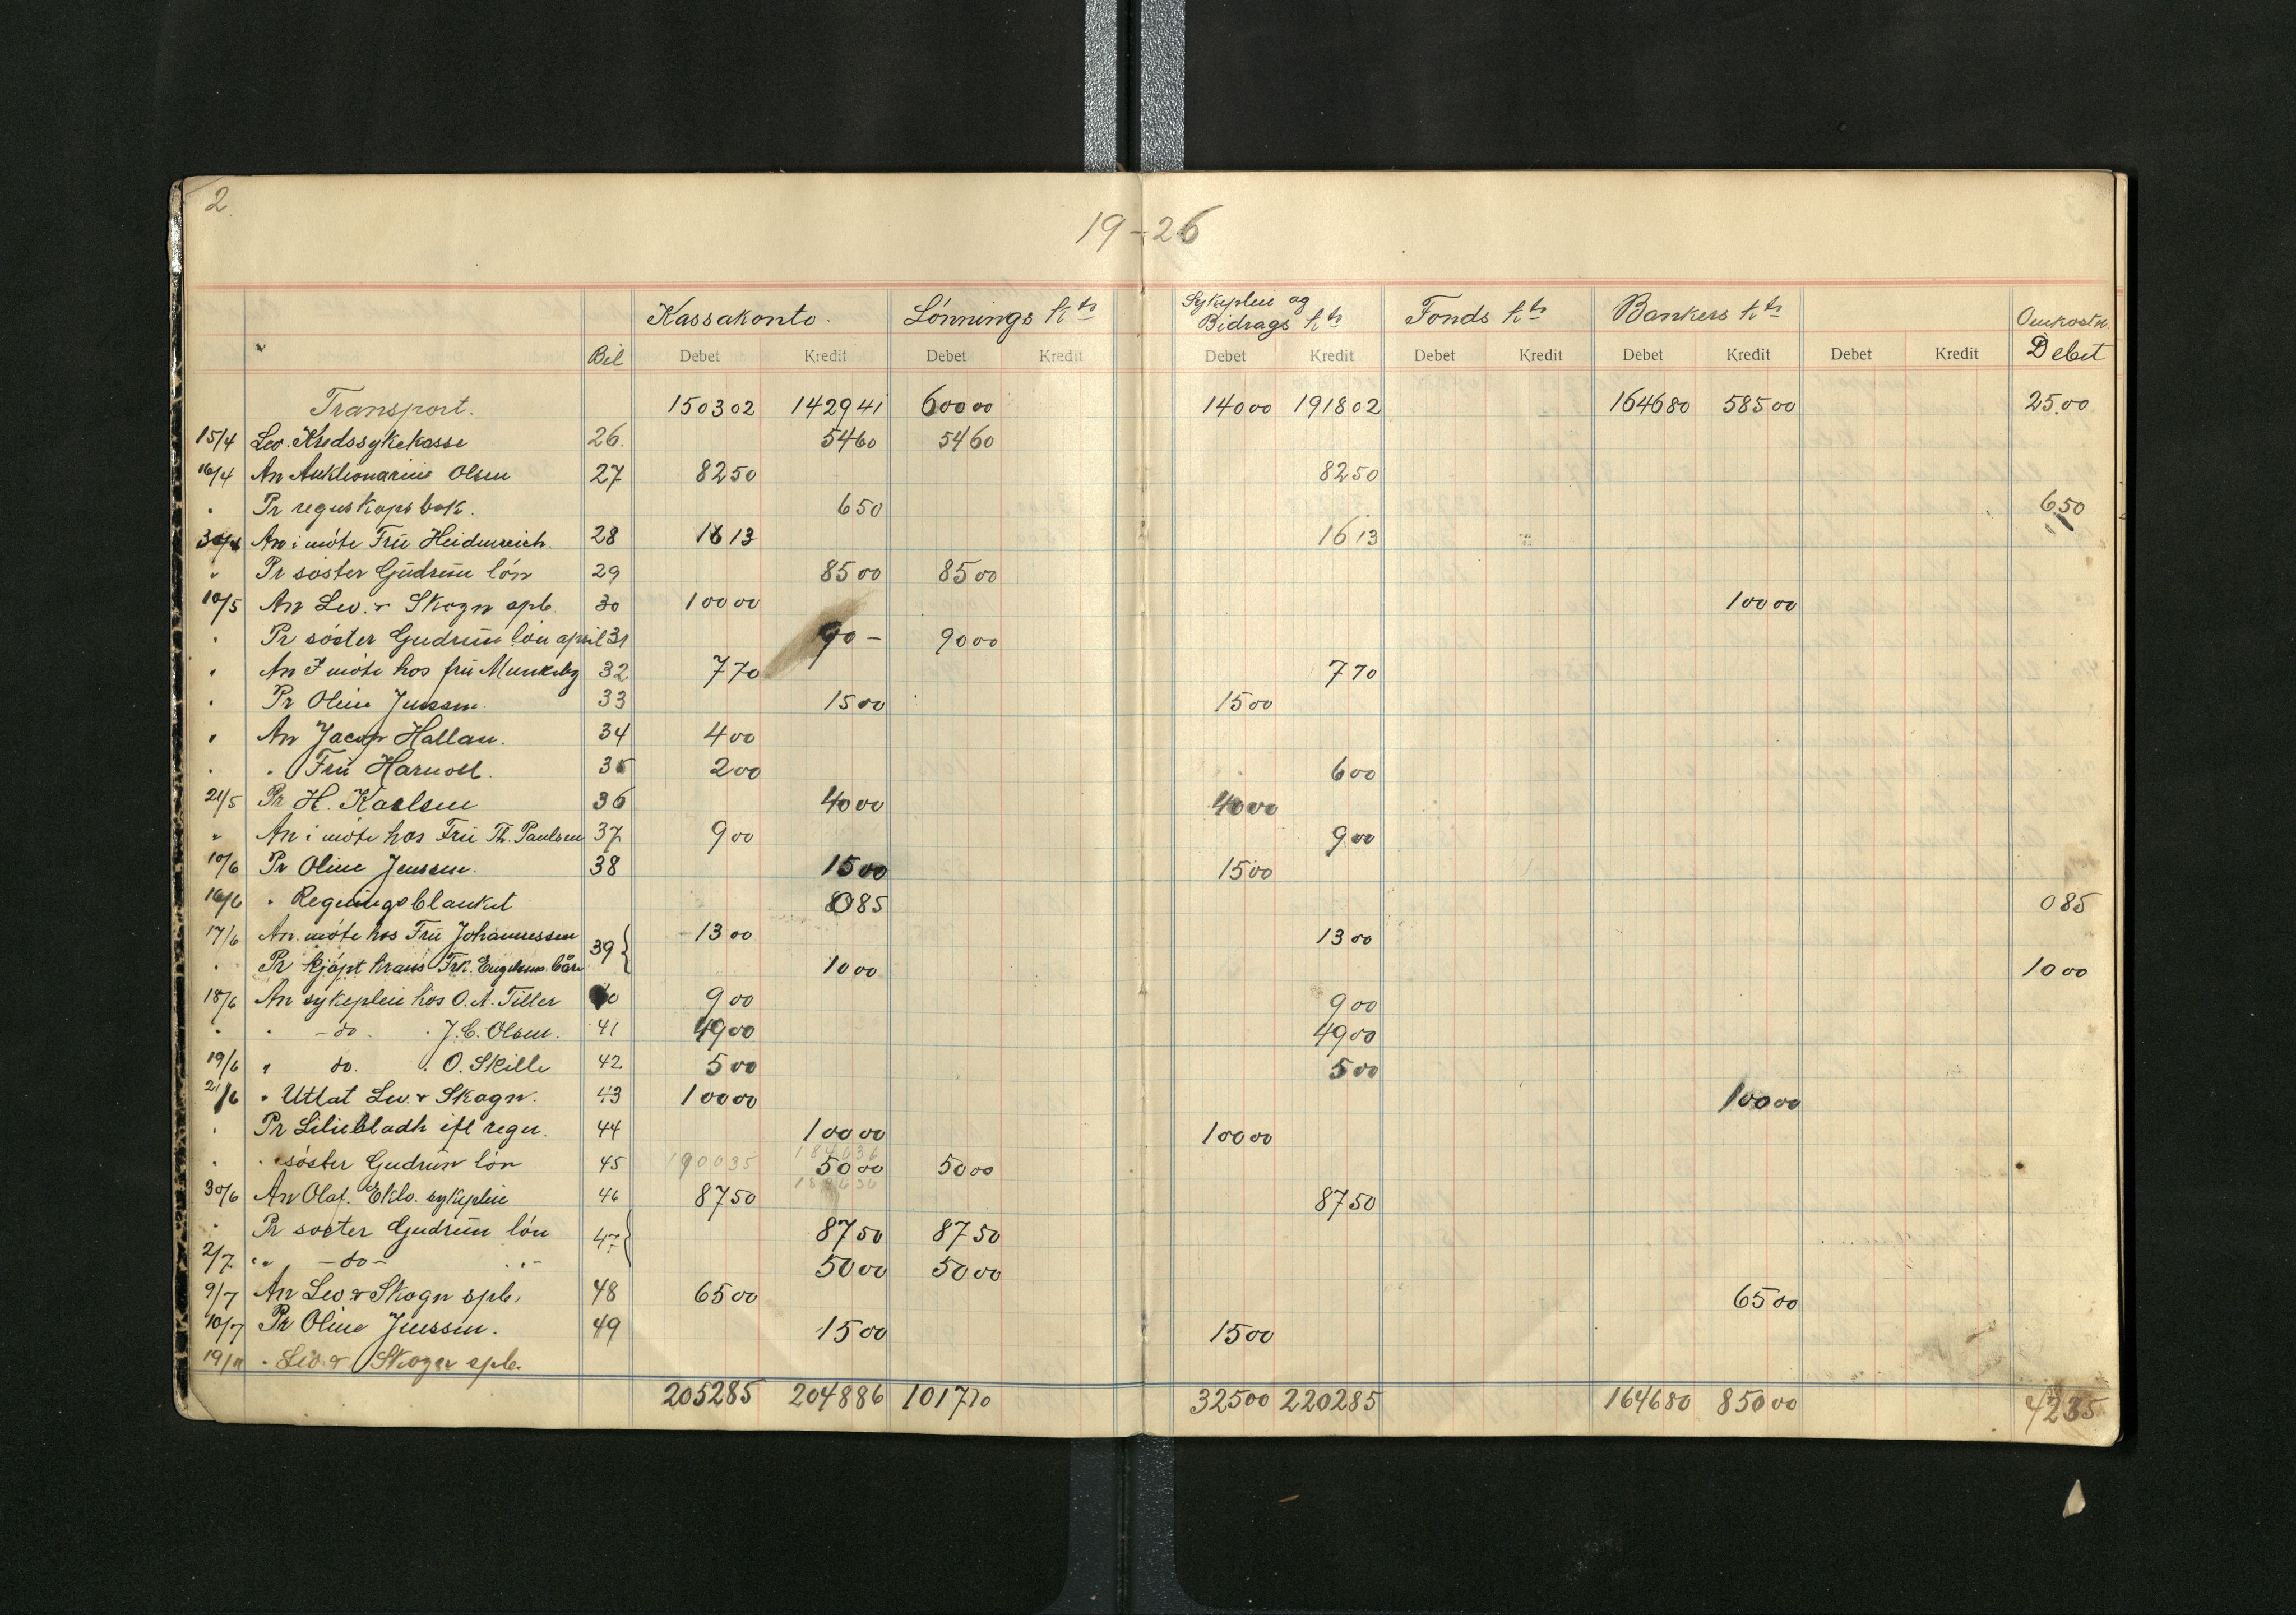 2.
19-26
Kassakonto. Lónnings kto Sykeplei og Bidrags kto Fonds kto Bankers kto Omkostn.
Bil Debet Kredit Debet Kredit Debet Kredit Debet Kredit Debet Kredit Debet Kredit Debet
Transport. 150302 142941 60000 14000 191802 164680 58500 25.00
15/4 Lev. Kredssykekasse 26. 5460 5460
16/4 An Auktionarius Olsen 27 8250 8250
" Pr regnskapsbok. 650 650
30/4 An i móte Frü Heidenreich. 28 1613 1613
" Pr sóster Gudrün lón 29 8500 8500
10/5 An Lev. & Skogn spb. 30 10000 10000
" Pr sóster Gudrün lón april 31 90- 9000
" An I móte hos frü Munkeby 32 770 770
" Pr Oline Jenssen. 33 1500 1500
" An Jacob Hallan. 34 400
" " Frü Harvoll. 35 200 600
21/5 Pr H. Karlsen 36 4000 4000
" An i móte hos Frü Th. Paulsen 37 900 900
10/6 Pr Oline Jenssen. 38 1500 1500
16/6 " Regningsblanket 085 085
17/6 An. móte hos Frü Johannessen 39 { 1300 1300
" Pr kjópt krans Frk. båre 1000 1000
18/6 An sykeplei hos O. A. Tiller 40 900 900
" " -do. " J. C. Olsen. 41 4900 4900
19/6 " do. " O. Skille 42 500 500
21/6 " Uttat Lev. & Skogn. 43 10000 10000
" Pr Liliebladh ifl regn. 44 10000 10000
" " sóster Gudrün lón 45 190035 184636 5000 5000
30/6 An Olaf. Eklo. sykeplei 46 184636 8750 8750
" Pr soster Gudrün lón 47 { 8750 8750
2/7 " " -do- " " - 5000 5000
9/7 An Lev & Skogn spb. 48 6500 6500
10/7 Pr Oline Jenssen. 49 1500 1500
19/7 " Lev & Skogn spb.
205285 204886 101710 32500 220285 164680 85000 4235